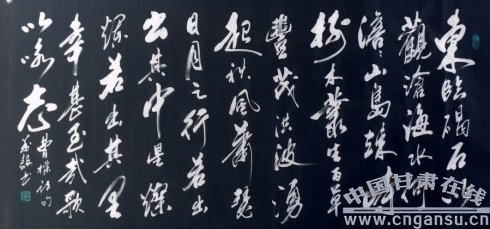 東臨碣石以
觀滄海水何
澹〻山島竦峙
樹木叢生百草
豐茂洪波湧
起秋風蕭瑟
日月之行若出
出其中星燦
爛若出其里
幸甚至哉歌
以詠志
曹操詩句
中国甘肃在线
www.cngansu.cn